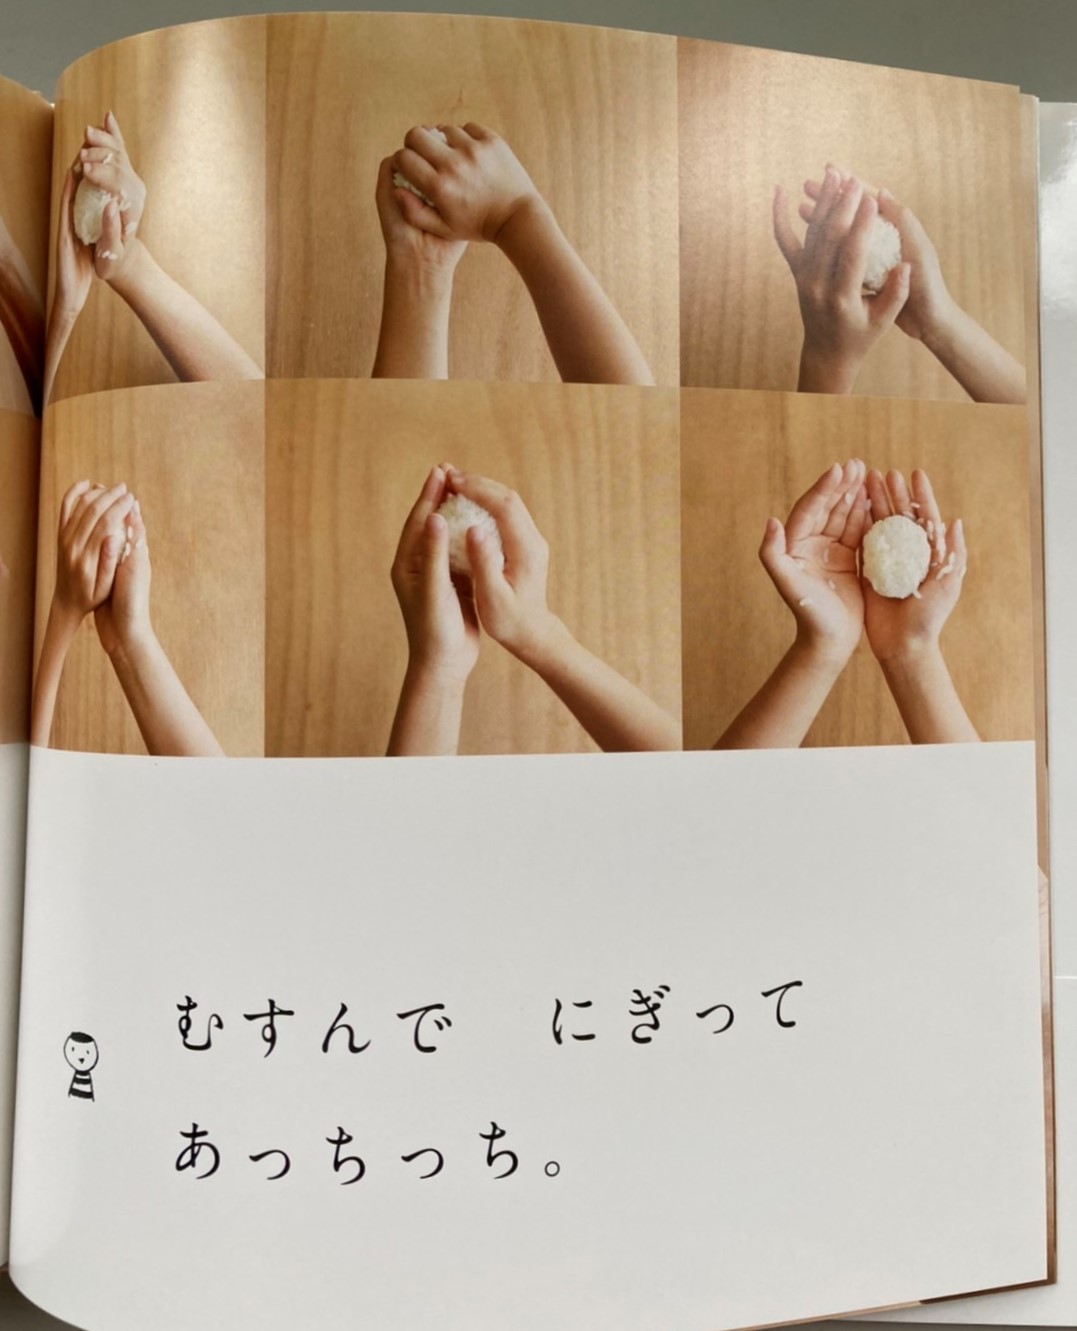 むすんで　にぎって
あっちっち。